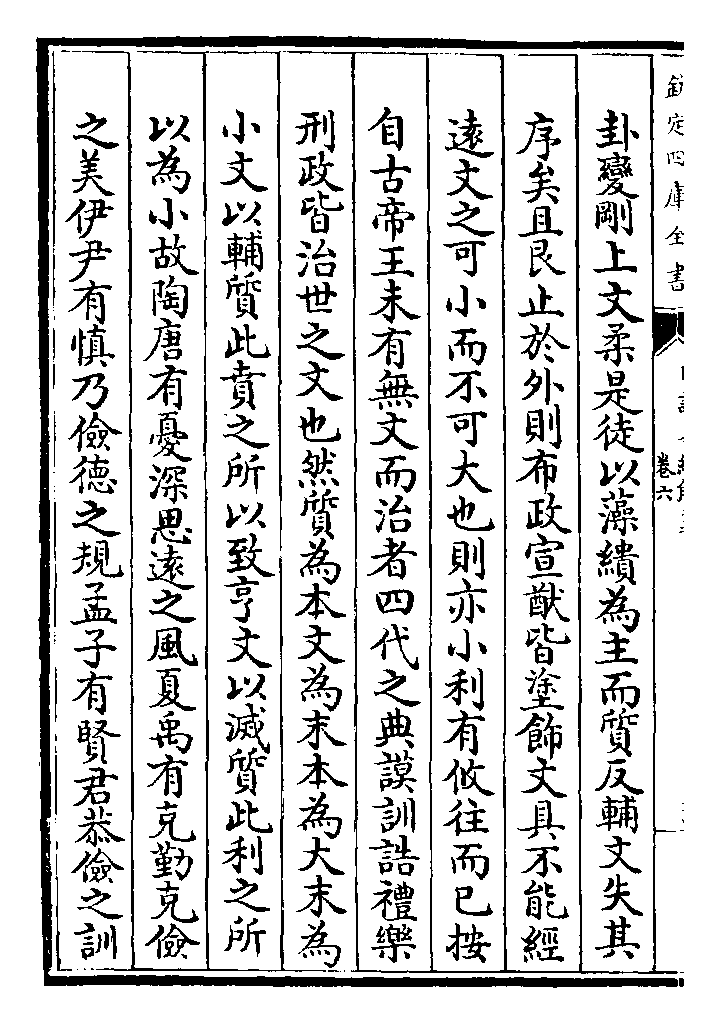 欽定四庫全書
卷六
卦變剛上文柔是徒以藻繢為主而質反輔文失其
序矣且艮止於外則布政宣猷皆塗飾文具不能經
遠文之可小而不可大也則亦小利有攸往而已按
自古帝王未有無文而治者四代之典謨訓誥禮樂
刑政皆治世之文也然質為本文為末本為大末為
小文以輔質此賁之所以致亨文以滅質此利之所
以為小故陶唐有憂深思遠之風夏禹有克勤克儉
之美伊尹有慎乃儉德之規孟子有賢君恭儉之訓